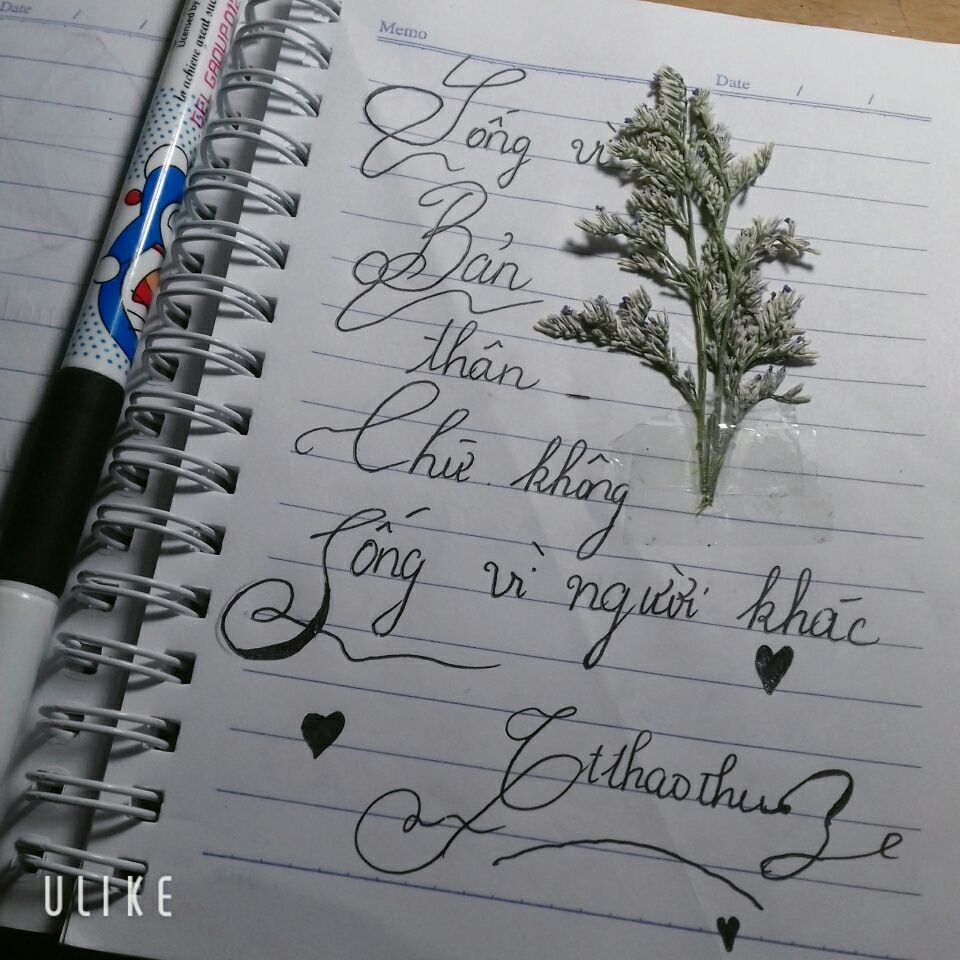 Date / /
Licensed by
to achieve great suc
GEL GROUP 012
Memo
Date / /
Sống vì
Bản
thân
Chứ không
Sống vì người khác
Ttthaothu
ULIKE